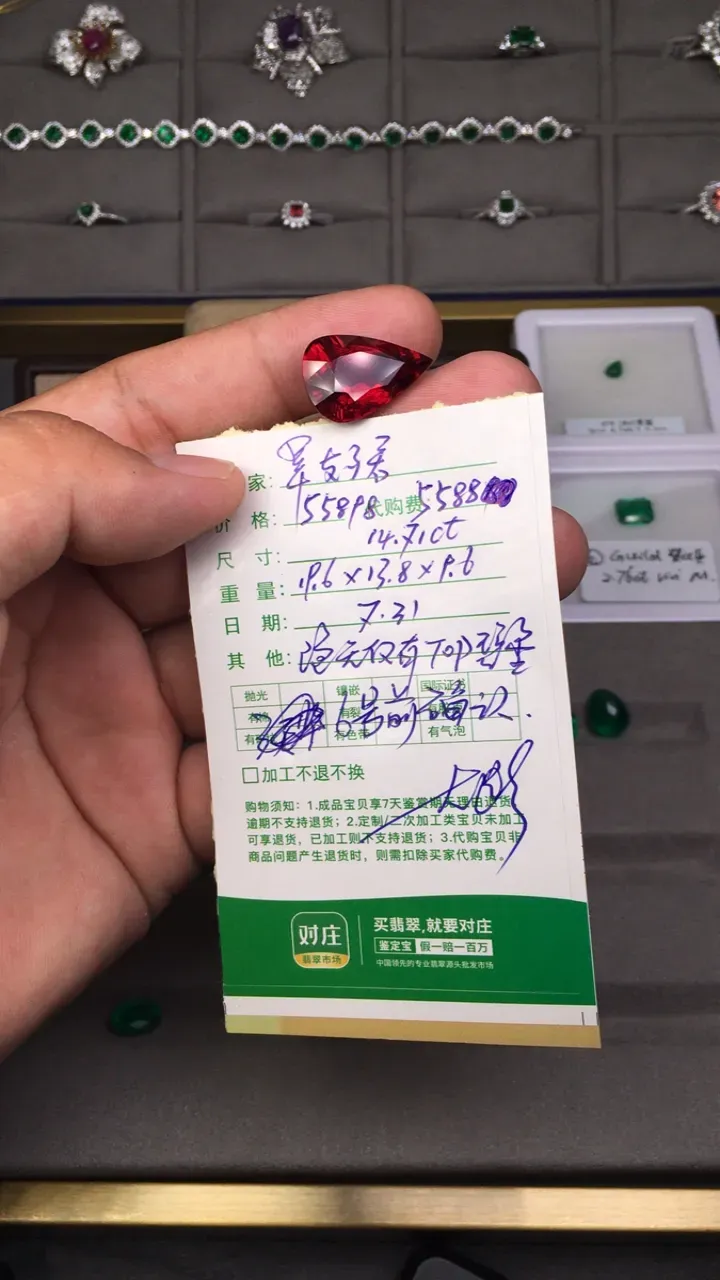 家:
价 格: 55898 代购费 5588
尺 寸: 14.71ct
重 量: 19.6×13.8×9.6
日 期: 7.31
其 他:
抛光 镶嵌 国际证书
有裂
有色带 有气泡
6号前确认.
加工不退不换
购物须知：1.成品宝贝享7天鉴赏期无理由退货，
逾期不支持退货；2.定制/二次加工类宝贝未加工
可享退货，已加工则不支持退货；3.代购宝贝非
商品问题产生退货时，则需扣除买家代购费。
对庄
翡翠市场
买翡翠,就要对庄
鉴定宝 假一赔一百万
中国领先的专业翡翠源头批发市场